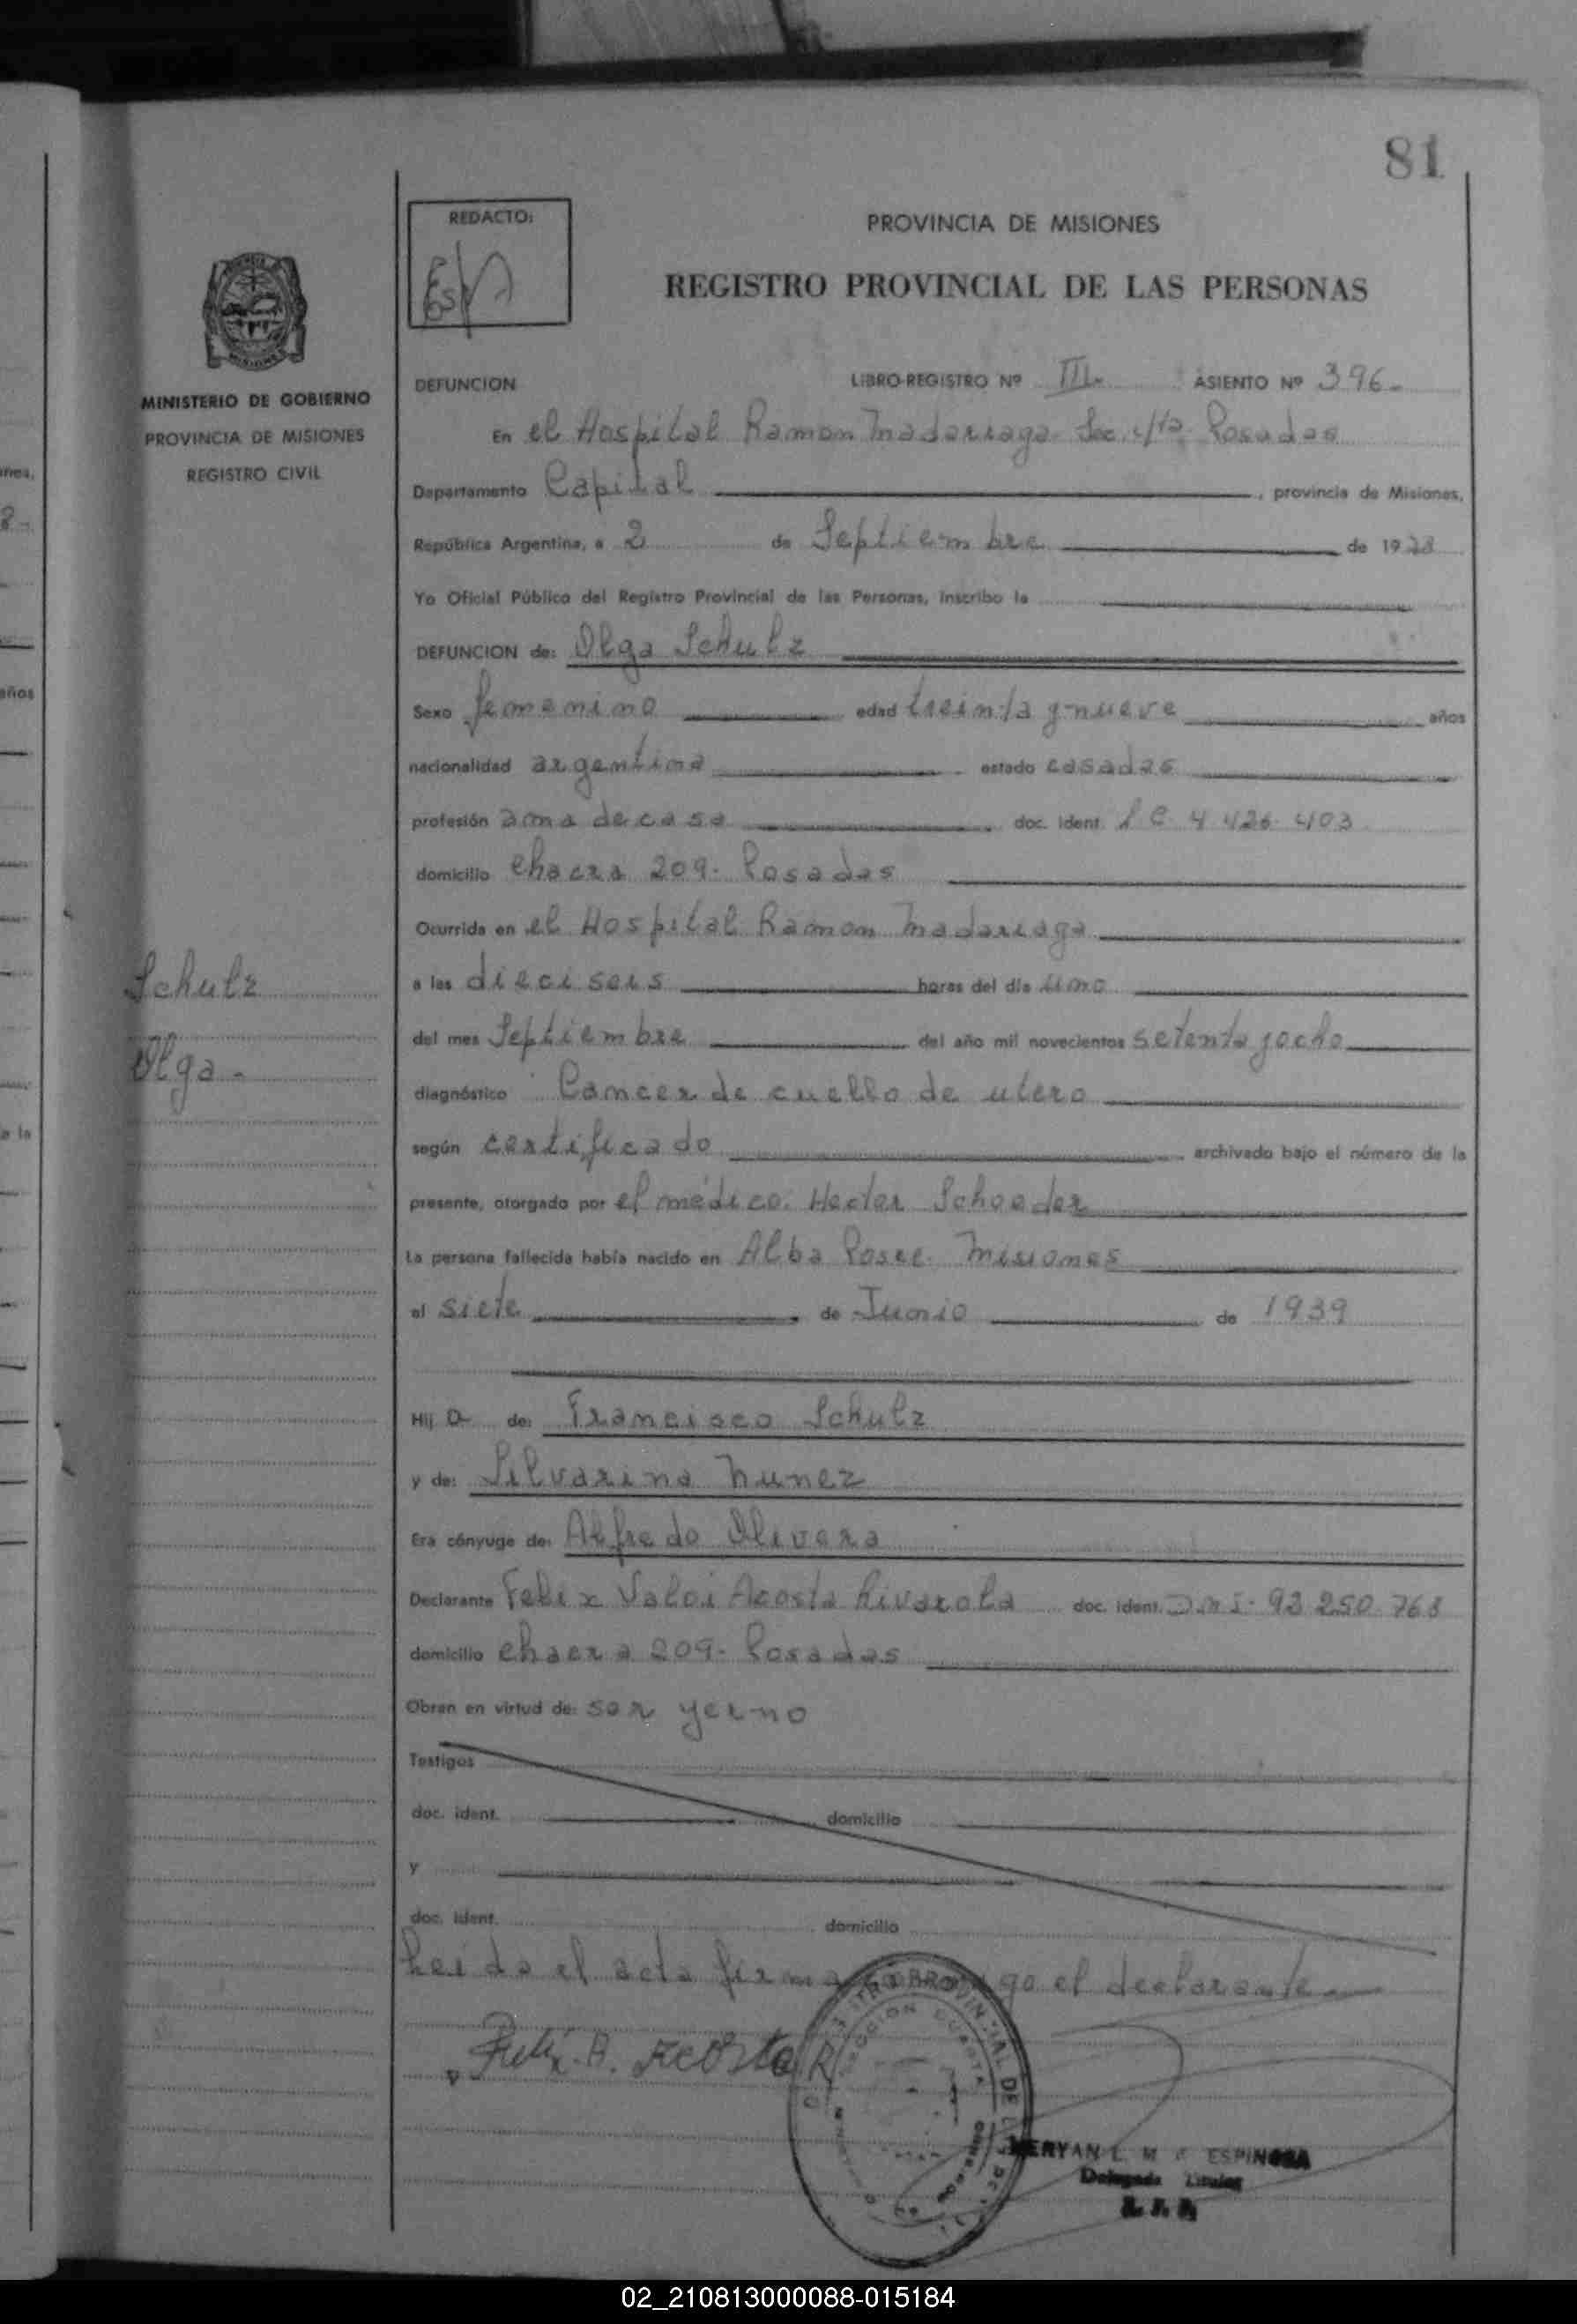 81
REDACTO:
PROVINCIA DE MISIONES
REGISTRO PROVINCIAL DE LAS PERSONAS
MINISTERIO DE GOBIERNO
PROVINCIA DE MISIONES
REGISTRO CIVIL
DEFUNCION LIBRO-REGISTRO Nº III- ASIENTO Nº 396-
En el Hospital Ramon Madariaga Sec. 4ta Posadas
Departamento Capital, provincia de Misiones,
República Argentina, a 2 de Septiembre de 1978
Yo Oficial Público del Registro Provincial de las Personas, inscribo la
DEFUNCION de: Olga Schulz
Sexo femenino edad treinta y nueve años
nacionalidad argentina estado casadas
profesión ama de casa doc. ident. L C 4 426 403
domicilio chacra 209- Posadas
Ocurrida en el Hospital Ramon Madariaga
a las dieciseis horas del día uno
del mes Septiembre del año mil novecientos setenta y ocho
diagnóstico Cancer de cuello de utero
según certificado archivado bajo el número de la
presente, otorgado por el médico. Hector Schoeder
La persona fallecida había nacido en Alba Posse- Misiones
el siete de Junio de 1939
Hija de: Francisco Schulz
y de: Silvarina Nunez
Era cónyuge de: Alfredo Olivera
Declarante Felix Valoi Acosta Rivarola doc. ident. D.N I- 93 250 768
domicilio chacra 209- Posadas
Obran en virtud de: ser yerno
Testigos
doc. ident. domicilio
y
doc. ident. domicilio
Leida el acta firma conmigo el declarante
Felix. A. Acosta R
Schulz
Olga-
SECCION CUARTA
MERYAN L. M ESPINOSA
Delegada Titular
R. P. P.
02_210813000088-015184